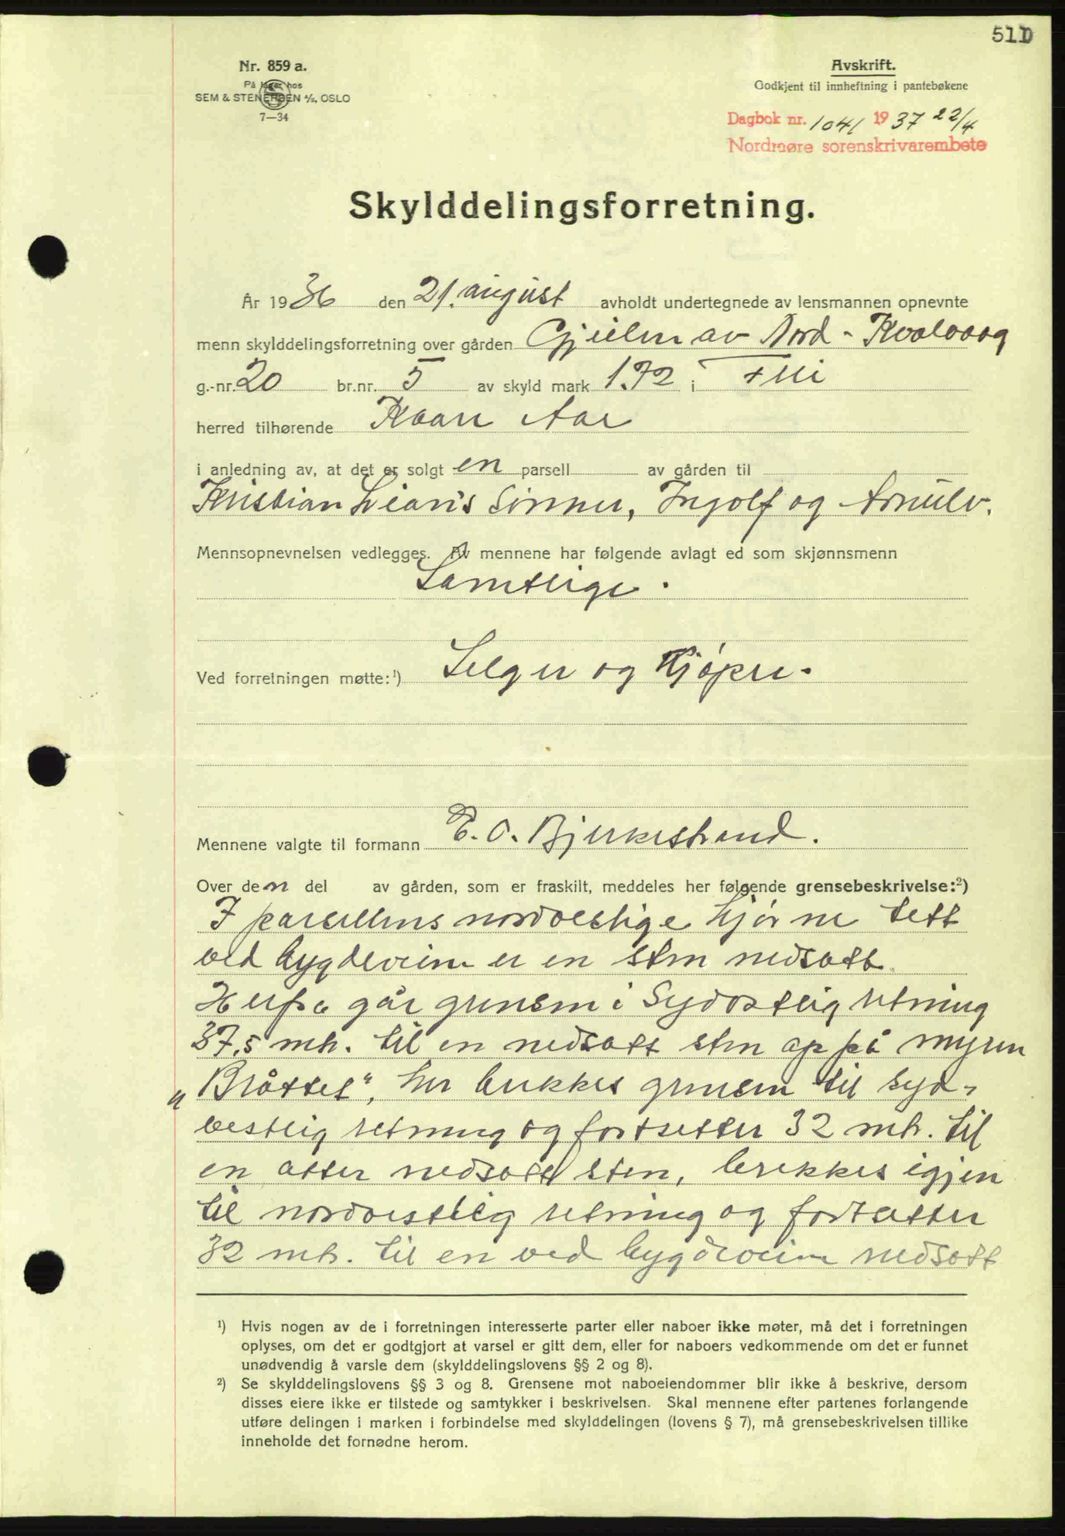 511
Nr. 859 a.
På lager hos
SEM & STENERSEN A/S, OSLO
7—34
Avskrift.
Godkjent til innheftning i pantebøkene
Dagbok nr. 1041 1937 22/4
Nordmøre sorenskrivarembete
Skylddelingsforretning.
År 1936 den 21. august avholdt undertegnede av lensmannen opnevnte
menn skylddelingsforretning over gården Gjeilen av Nord-Kvalvaag
g.-nr. 20 br.nr. 5 av skyld mark 1.72 i
herred tilhørende Kaare Aae
i anledning av, at det er solgt en parsell av gården til
Kristian Leari's Sønner, Ingolf og Arnulv.
Mennsopnevnelsen vedlegges. Av mennene har følgende avlagt ed som skjønnsmenn
Samtlige.
Ved forretningen møtte:¹) Selger og Kjøpere.
Mennene valgte til formann E. O. Bjerkestrand.
Over den del av gården, som er fraskilt, meddeles her følgende grensebeskrivelse:²)
I parsellens nordvestlige hjørne tett
ved bygdeveien er en sten nedsatt.
Herfra går grensen i Sydøstlig retning
37,5 mtr. til en nedsatt sten op på myren
"Bråttet", her brekkes grensen til syd-
vestlig retning og fortsetter 32 mtr. til
en atter nedsatt sten, brekkes igjen
til nordvestlig retning og fortsetter
32 mtr. til en ved bygdeveien nedsatt
¹) Hvis nogen av de i forretningen interesserte parter eller naboer ikke møter, må det i forretningen
oplyses, om det er godtgjort at varsel er gitt dem, eller for naboers vedkommende om det er funnet
unødvendig å varsle dem (skylddelingslovens §§ 2 og 8).
²) Se skylddelingslovens §§ 3 og 8. Grensene mot naboeiendommer blir ikke å beskrive, dersom
disses eiere ikke er tilstede og samtykker i beskrivelsen. Skal mennene efter partenes forlangende
utføre delingen i marken i forbindelse med skylddelingen (lovens § 7), må grensebeskrivelsen tillike
inneholde det fornødne herom.